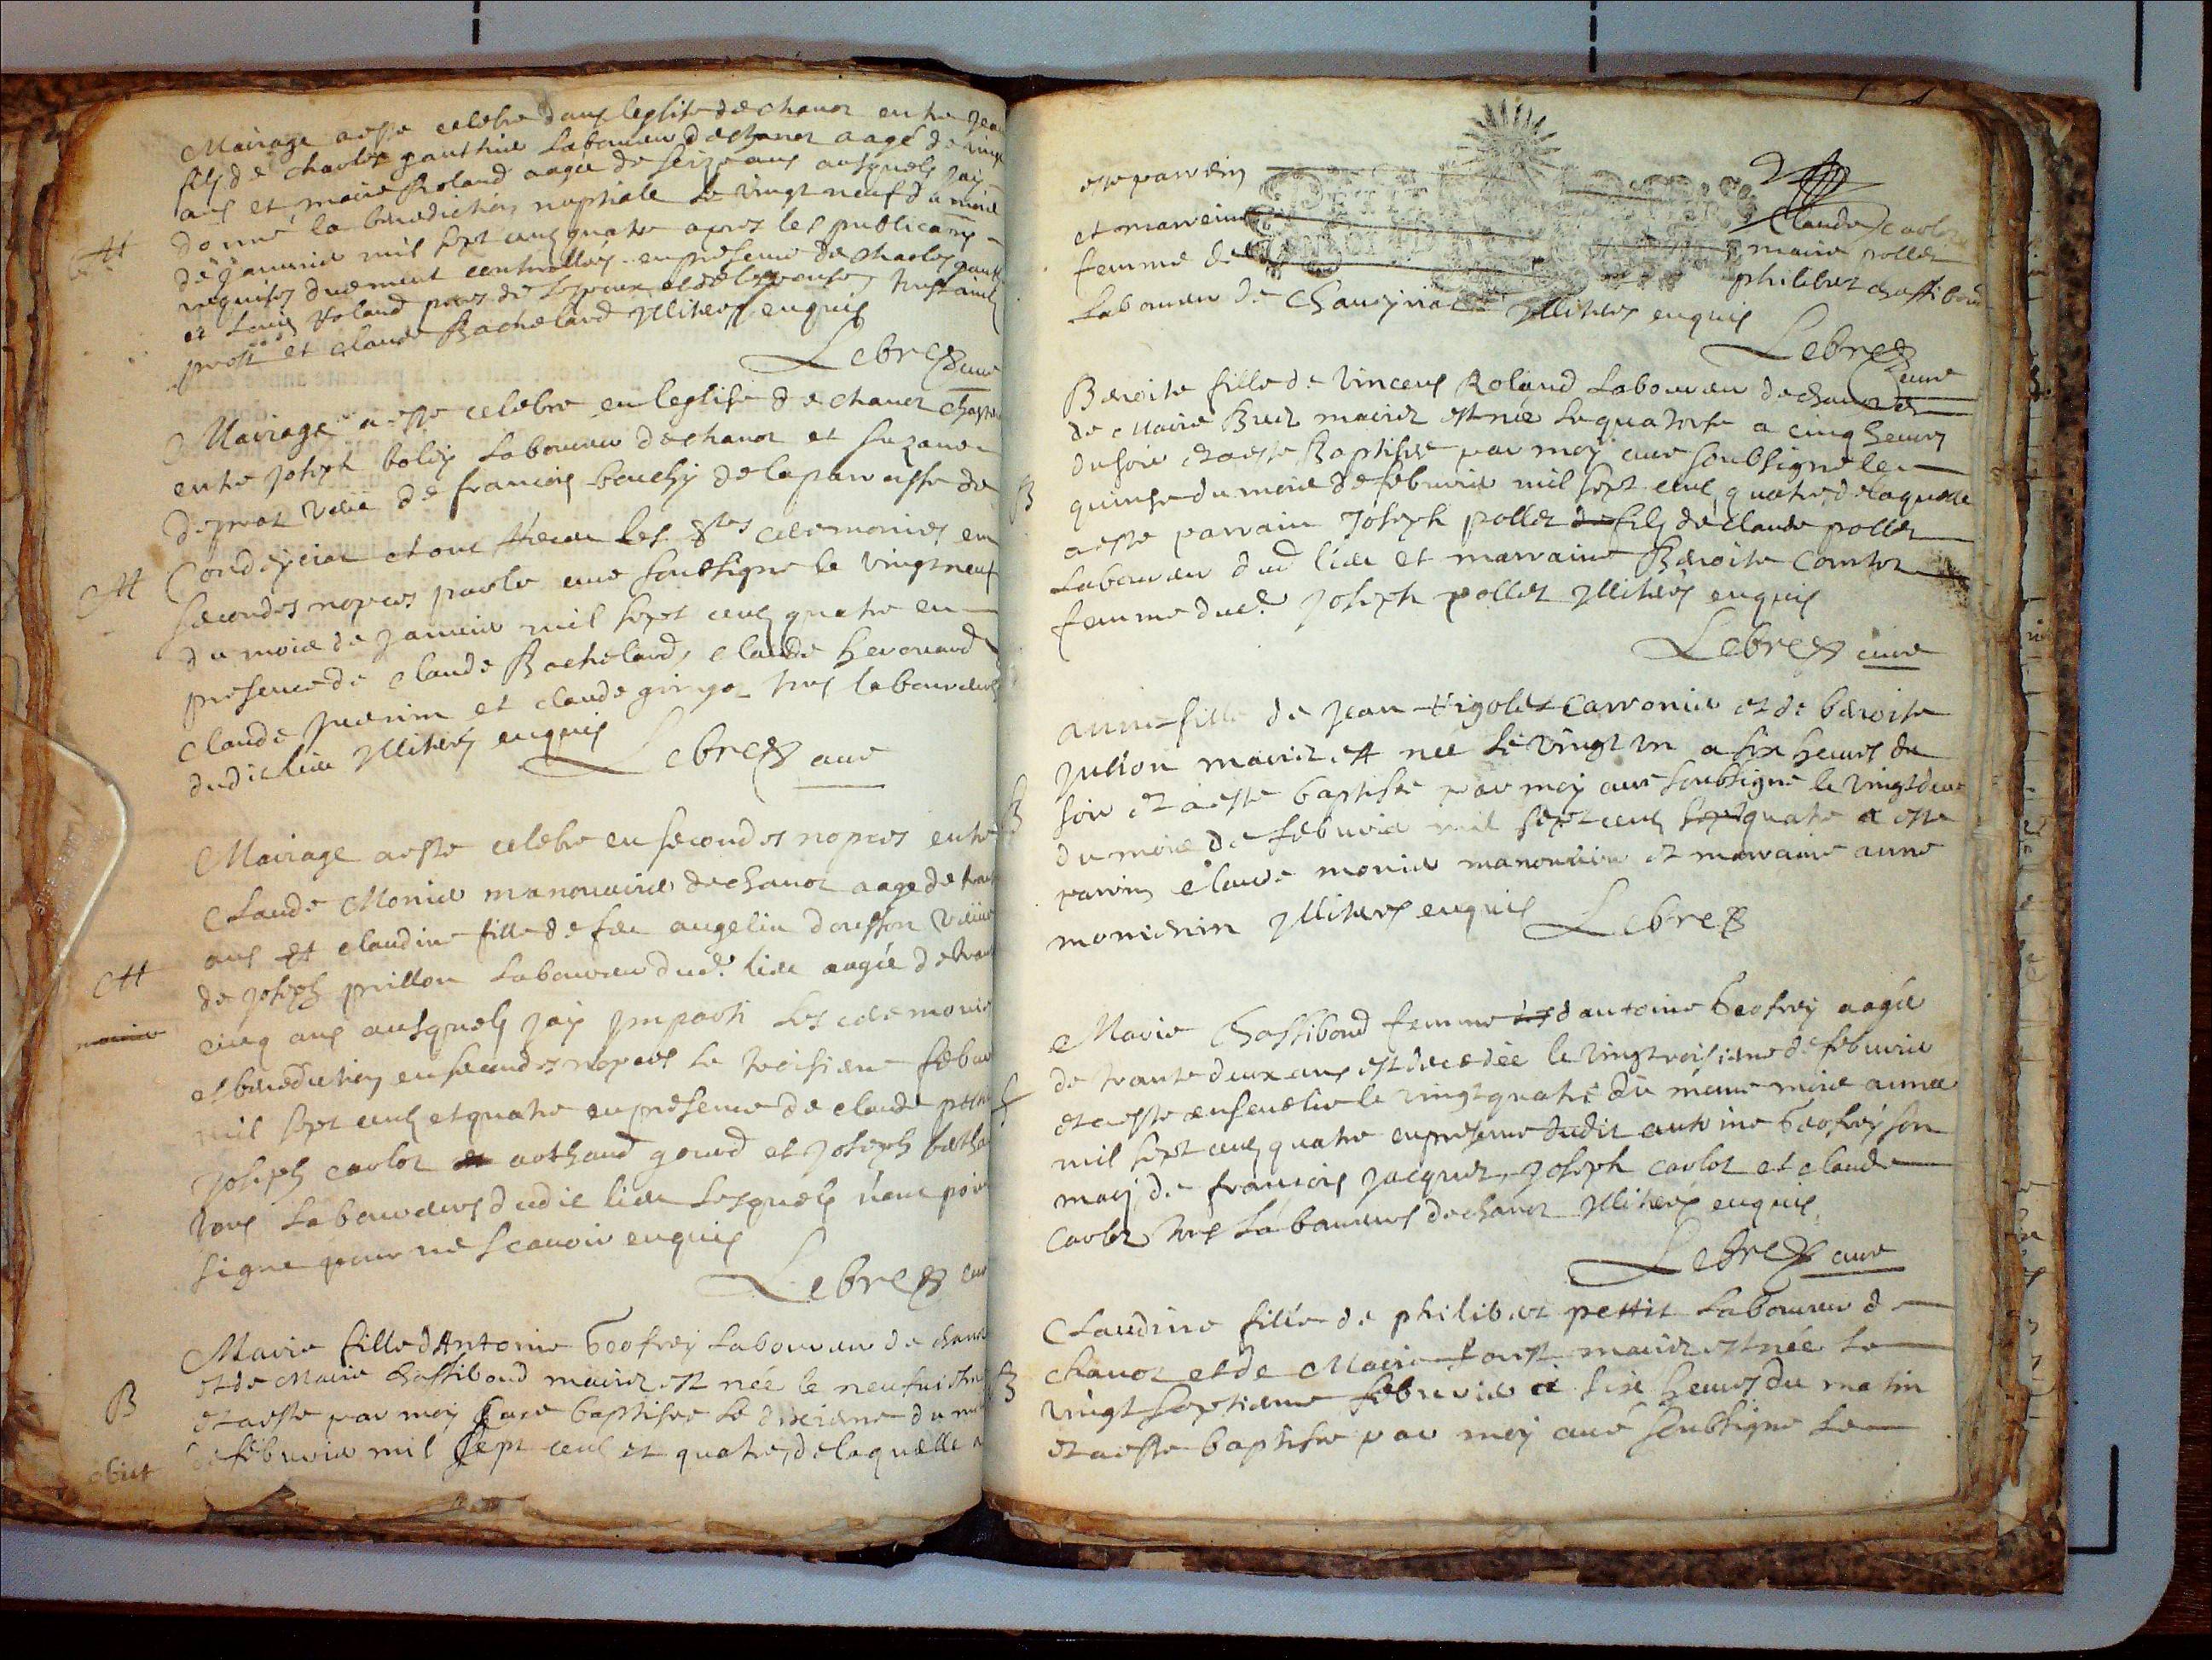 Mariage a esté celebre dans leglise de chanoz entre Jean
fils de charles gauthier Laboureur de chanoz aagé de vingt
ans et marie Roland aagée de seize ans ausquels Jay
donné la benediction nuptiale le vingt neuf du mois
de Janvier mil sept cens quatre apres les publicaons
requises duement controllées en presence de charles gauth
et Louis Roland peres de lespoux et de lespouse,
prost et claude Bachelard Illiterés enquis
Lebrez curé
M
Mariage a esté celebre en leglise de chanoz
entre Joseph boley Laboureur de chanoz et Suzanne
veüe de francois bouchy de la parroisse de
Condeyciat et ont receu les stes ceremonies en
secondes nopces par le curé soubsigne le vingt neuf
du mois de Janvier mil sept cens quatre en
presence de claude Bachelard, claude
claude Juenin et claude tous laboureurs
dudit lieu Illiterés enquis
Lebrez curé
M
Mariage a esté celebre en secondes nopces entre
Claude Monier manouvrier de chanoz aage de trante
ans et claudine fille de feu angelin dousson veüve
de Joseph prillon Laboureur dud. lieu aagée de trante
cinq ans ausquels Jay Imparti les ceremonies
et benediction en secondes nopces le troisieme febvrier
mil sept cens et quatre en presence de claude
Joseph carloz et arthaud gourd et Joseph
tous Laboureurs dudit lieu lesquels n'ont point
signe pour ne scavoir enquis
Lebrez curé
M
Marie fille d'Antoine Geofrey Laboureur de chanoz
et de Marie Chassiboud mariez est née le neufviesme
et a esté par moy curé baptisée le dixieme du mois
de febvrier mil sept cens et quatre, de laquelle a
B
obiit
esté parrein Claude Carloz
et marreine marie pollet
femme de philibert chassiboud
Laboureur de Chaveyriat Illiterés enquis
Lebrez curé
Benoite fille de Vincens Roland Laboureur de chanoz
de Marie Brez mariez est née le quatorse a cinq heures
du soir et a esté Baptisée par moy curé soubsigne le
quinse du mois de febvrier mil sept cens quatre de laquelle
a esté parrain Joseph pollet fils de claude pollet
Laboureur dud lieu et marraine Benoite Comtoz
femme dud. Joseph pollet Illiterés enquis
Lebrez curé
B
anne fille de Jean Rigolet Carronier et de benoite
Julion mariez est née le vingt un a six heures du
soir et a esté baptisée par moy curé soubsigne le vingt deux
du mois de febvrier mil sept cens quatre a esté
parrin claude monier manouvrier et marraine anne
monienin Illiterés enquis
Lebrez
B
Marie Chassiboud femme d'antoine Geofrey aagée
de trante deux ans est decedée le vingt troisieme de febvrier
et a esté ensevelie le vingt quatre du meme mois annee
mil sept cens quatre en presence dudit antoine Geofrey son
mary, de francois Jacquet, Joseph carloz et claude
Carloz tous Laboureurs de chanoz Illiterés enquis
Lebrez curé
Claudine fille de philibert pettit Laboureur de
chanoz et de Marie mariez est née le
vingt septieme febvrier a six heures du matin
et a esté baptisée par moy curé soubsigne le
B